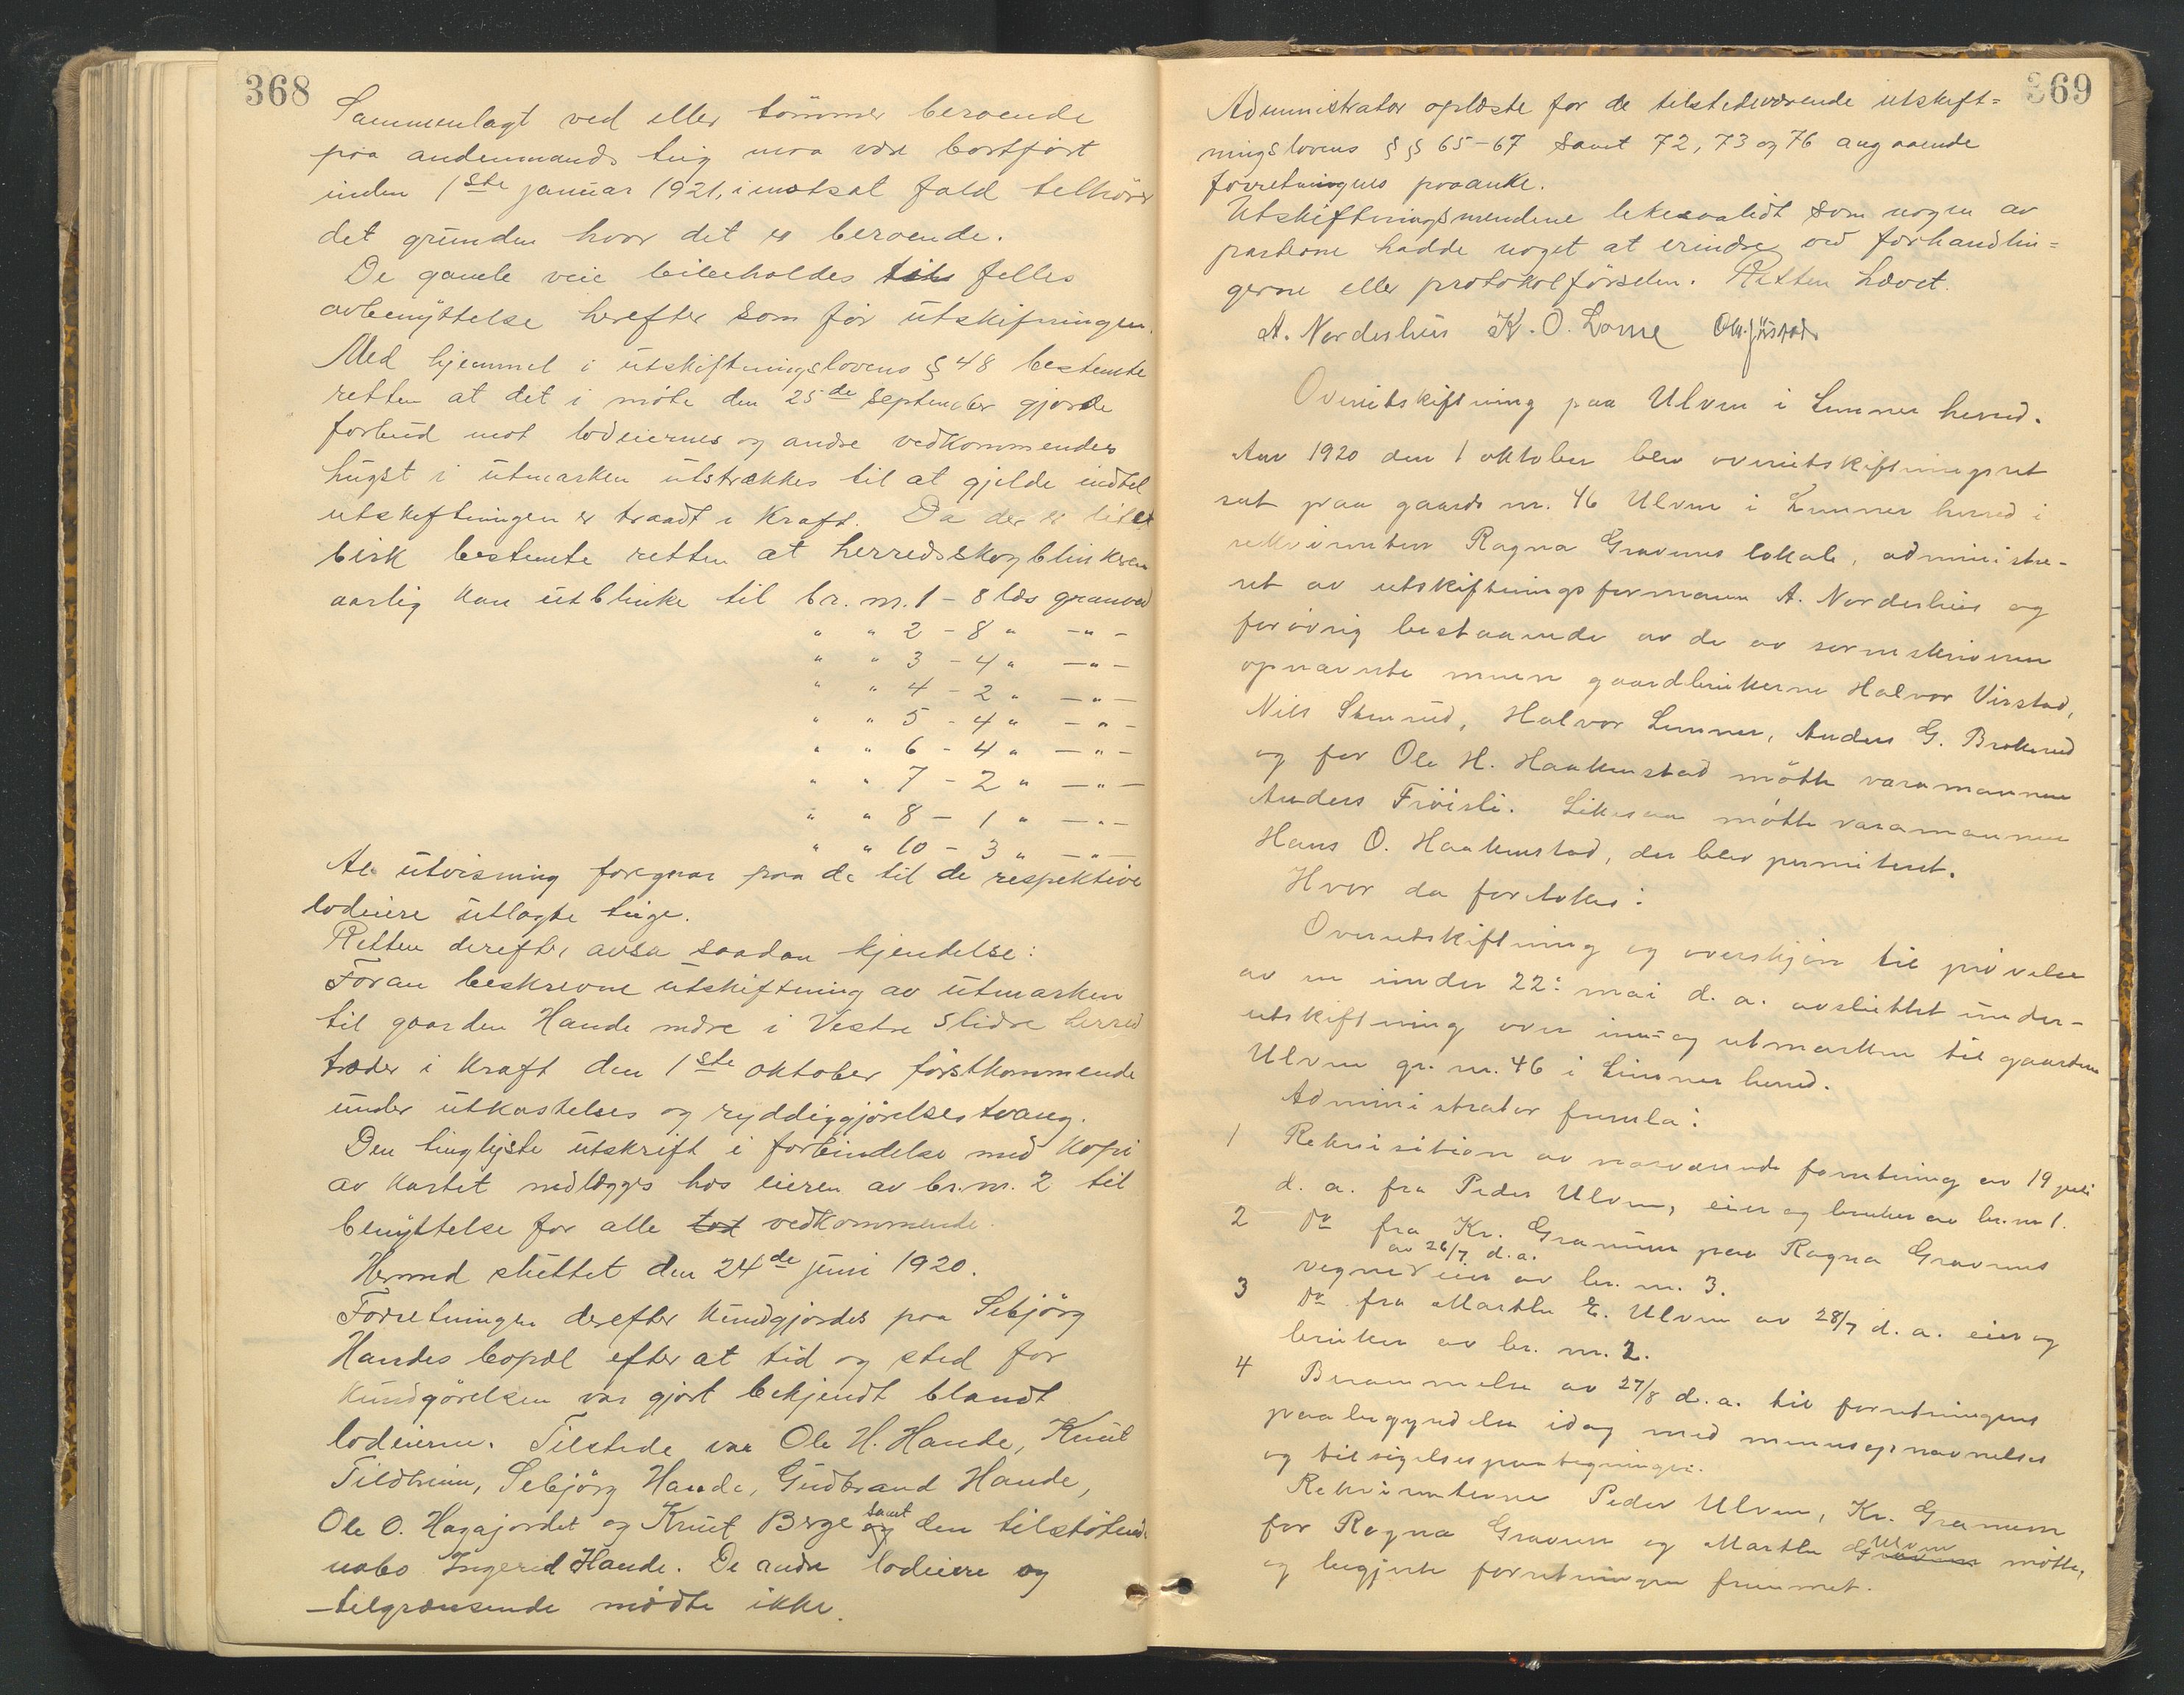 368
Sammenlagt ved eller tömmer beroende
paa andenmands teig maa være bortfört
inden 1ste januar 1921, i motsat fald tilhörer
det grunden hvor det er beroende.
De gamle veie beibeholdes til felles
avbenyttelse herefter som för utskifningen.
Med hjemmel i utskiftningslovens § 48 bestemte
retten at det i möte den 25de september gjorde
forbud mot lodeiernes og andre vedkommendes
hugst i utmarken utstrækkes til at gjelde indtil
utskiftningen er traadt i kraft. Da der er litet
birk bestemte retten at herredsskogblinkeren
aarlig kan utblinke til br. nr. 1 - 8 læs granved
" " 2 - 8 " - " -
" " 3 - 4 " - " -
" " 4 - 2 " - " -
" " 5 - 4 " - " -
" " 6 - 4 " - " -
" " 7 - 2 " - " -
" " 8 - 1 " - " -
" " 10 - 3 " - " -
Al utvisning foregaar paa de til de respektive
lodeiere utlagte teige.
Retten derefter avsa saadan kjendelse:
Foran beskrevne utskiftning av utmarken
til gaarden Hande nedre i Vestre Slidre herred
træder i kraft den 1ste oktober förstkommende
under utkastelses og ryddiggjörelsestvang.
Den tinglyste utskrift i forbindelse med kopi
av kartet nedlægges hos eieren av br. nr. 2 til
benyttelse for alle vedkommende.
Hermed sluttet den 24de juni 1920.
Forretningen derefter kundgjordes paa Sebjörg
Handes bopæl efter at tid og sted for
kundgörelsen var gjort bekjendt blandt
lodeierne. Tilstede var Ole H. Hande, Knut
Tildheim, Sebjörg Hande, Gudbrand Hande,
Ole O. Hagajordet og Knut Berge samt den tilstötende
nabo Ingerid Hande. De andre lodeiere og
tilgrænsende mödte ikke.
369
Administrator oplæste for de tilstedeværende utskift=
ningslovens § § 65-67 samt 72, 73 og 76 angaaende
forretningens paaanke.
Utskiftningsmendene likesaalidt som nogen av
parterne hadde noget at erindre ved forhandlin=
gerne eller protokolförselen. Retten hævet.
A. Nordeshus K. O. Lome
Overutskiftning paa Ulven i Lunner herred.
Aar 1920 den 1 oktober blev overutskiftningsret
sat paa gaards nr. 46 Ulven i Lunner herred i
rekvirenten Ragna Gravens lokale, administre-
ret av utskiftningsformann A. Nordeshus og
forövrig bestaaende av de av sorenskriveren
opnævnte menn gaardbrukerne Halvor Virstad,
Nils Stenrud, Halvor Lunner, Anders G. Brokerud
og for Ole H. Haakenstad mötte varamannen
Anders Fröisli. Likesaa mötte varamannen
Hans O. Haakenstad, der blev permitteret.
Hvor da foretokes:
Overutskiftning og overskjön til prövelse
av en under 22: mai d. a. avsluttet under-
utskiftning over inn= og utmarken til gaarden
Ulven gr. nr. 46 i Lunner herred.
Administrator fremla:
1 Rekvisition av nærværende forretning av 19 juli
d. a. fra Peder Ulven, eier og bruker av br. nr 1.
2 Do fra Kr. Granum paa Ragna Gravens
av 26/7 d. a.
vegne eier av br. nr. 3.
3 Do fra Marthe E. Ulven av 28/7 d. a. eier og
bruker av br. nr. 2.
4 Berammelse av 27/8 d. a. til forretningens
paabegyndelse idag med mennsopnævnelses
og tilsigelsespaategninger.
Rekvirenterne Peder Ulven, Kr. Granum
for Ragna Graven og Marthe Ulven mötte,
og begjærte forretningen fremmet.